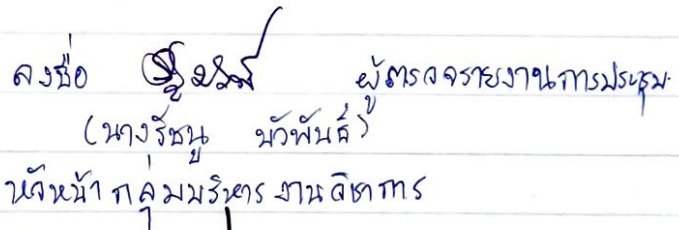 ลงชื่อ ผู้ตรวจรายงานการประชุม
(นางรัชนู บัวพันธ์)
หัวหน้ากลุ่มบริหารงานวิชาการ